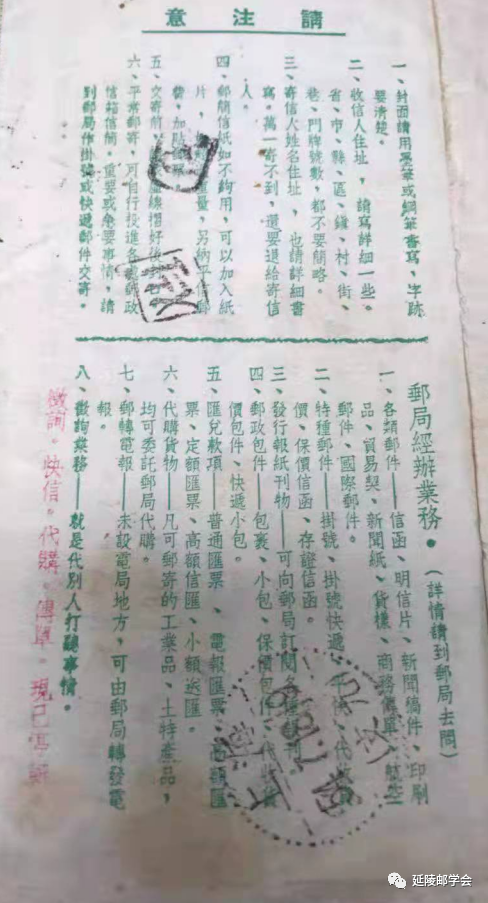 請注意
一、封面請用墨筆或鋼筆書寫，字跡
要清楚。
二、收信人住址，請寫詳細一些。
省、市、縣、區、鎮、村、街、
巷、門牌號數，都不要簡略。
三、寄信人姓名住址，也請詳細書
寫。萬一寄不到，還要退給寄信
人。
四、郵簡信紙如不夠用，可以加入紙
片，
費，加
五、交寄前
六、平常郵寄，可自行投進各
信箱信筒。重要或急要事情，請
到郵局作掛號或快遞郵件交寄。
郵局經辦業務。（詳情請到郵局去問）
一、各類郵件——信函、明信片、新聞稿件、印刷
品、貿易契、新聞紙、貨樣、商務傳單、瞽
郵件、國際郵件。
二、特種郵件——掛號、掛號快遞、
價、保價信函、存證信函。
三、發行報紙刊物——可向郵局訂閱各
四、郵政包件——包裹、小包、保價包件、代收貨
價包件、快遞小包。
五、匯兌款項——普通匯票、電報匯票、高額匯
票、定額匯票、高額信匯、小額送匯。
六、代購貨物——凡可郵寄的工業品、土特產品，
均可委託郵局代購。
七、郵轉電報——未設電局地方，可由郵局轉發電
報。
八、徵詢業務——就是代別人打聽事情。
徵詢。快信。代購。傳單。現已停辦
延陵邮学会